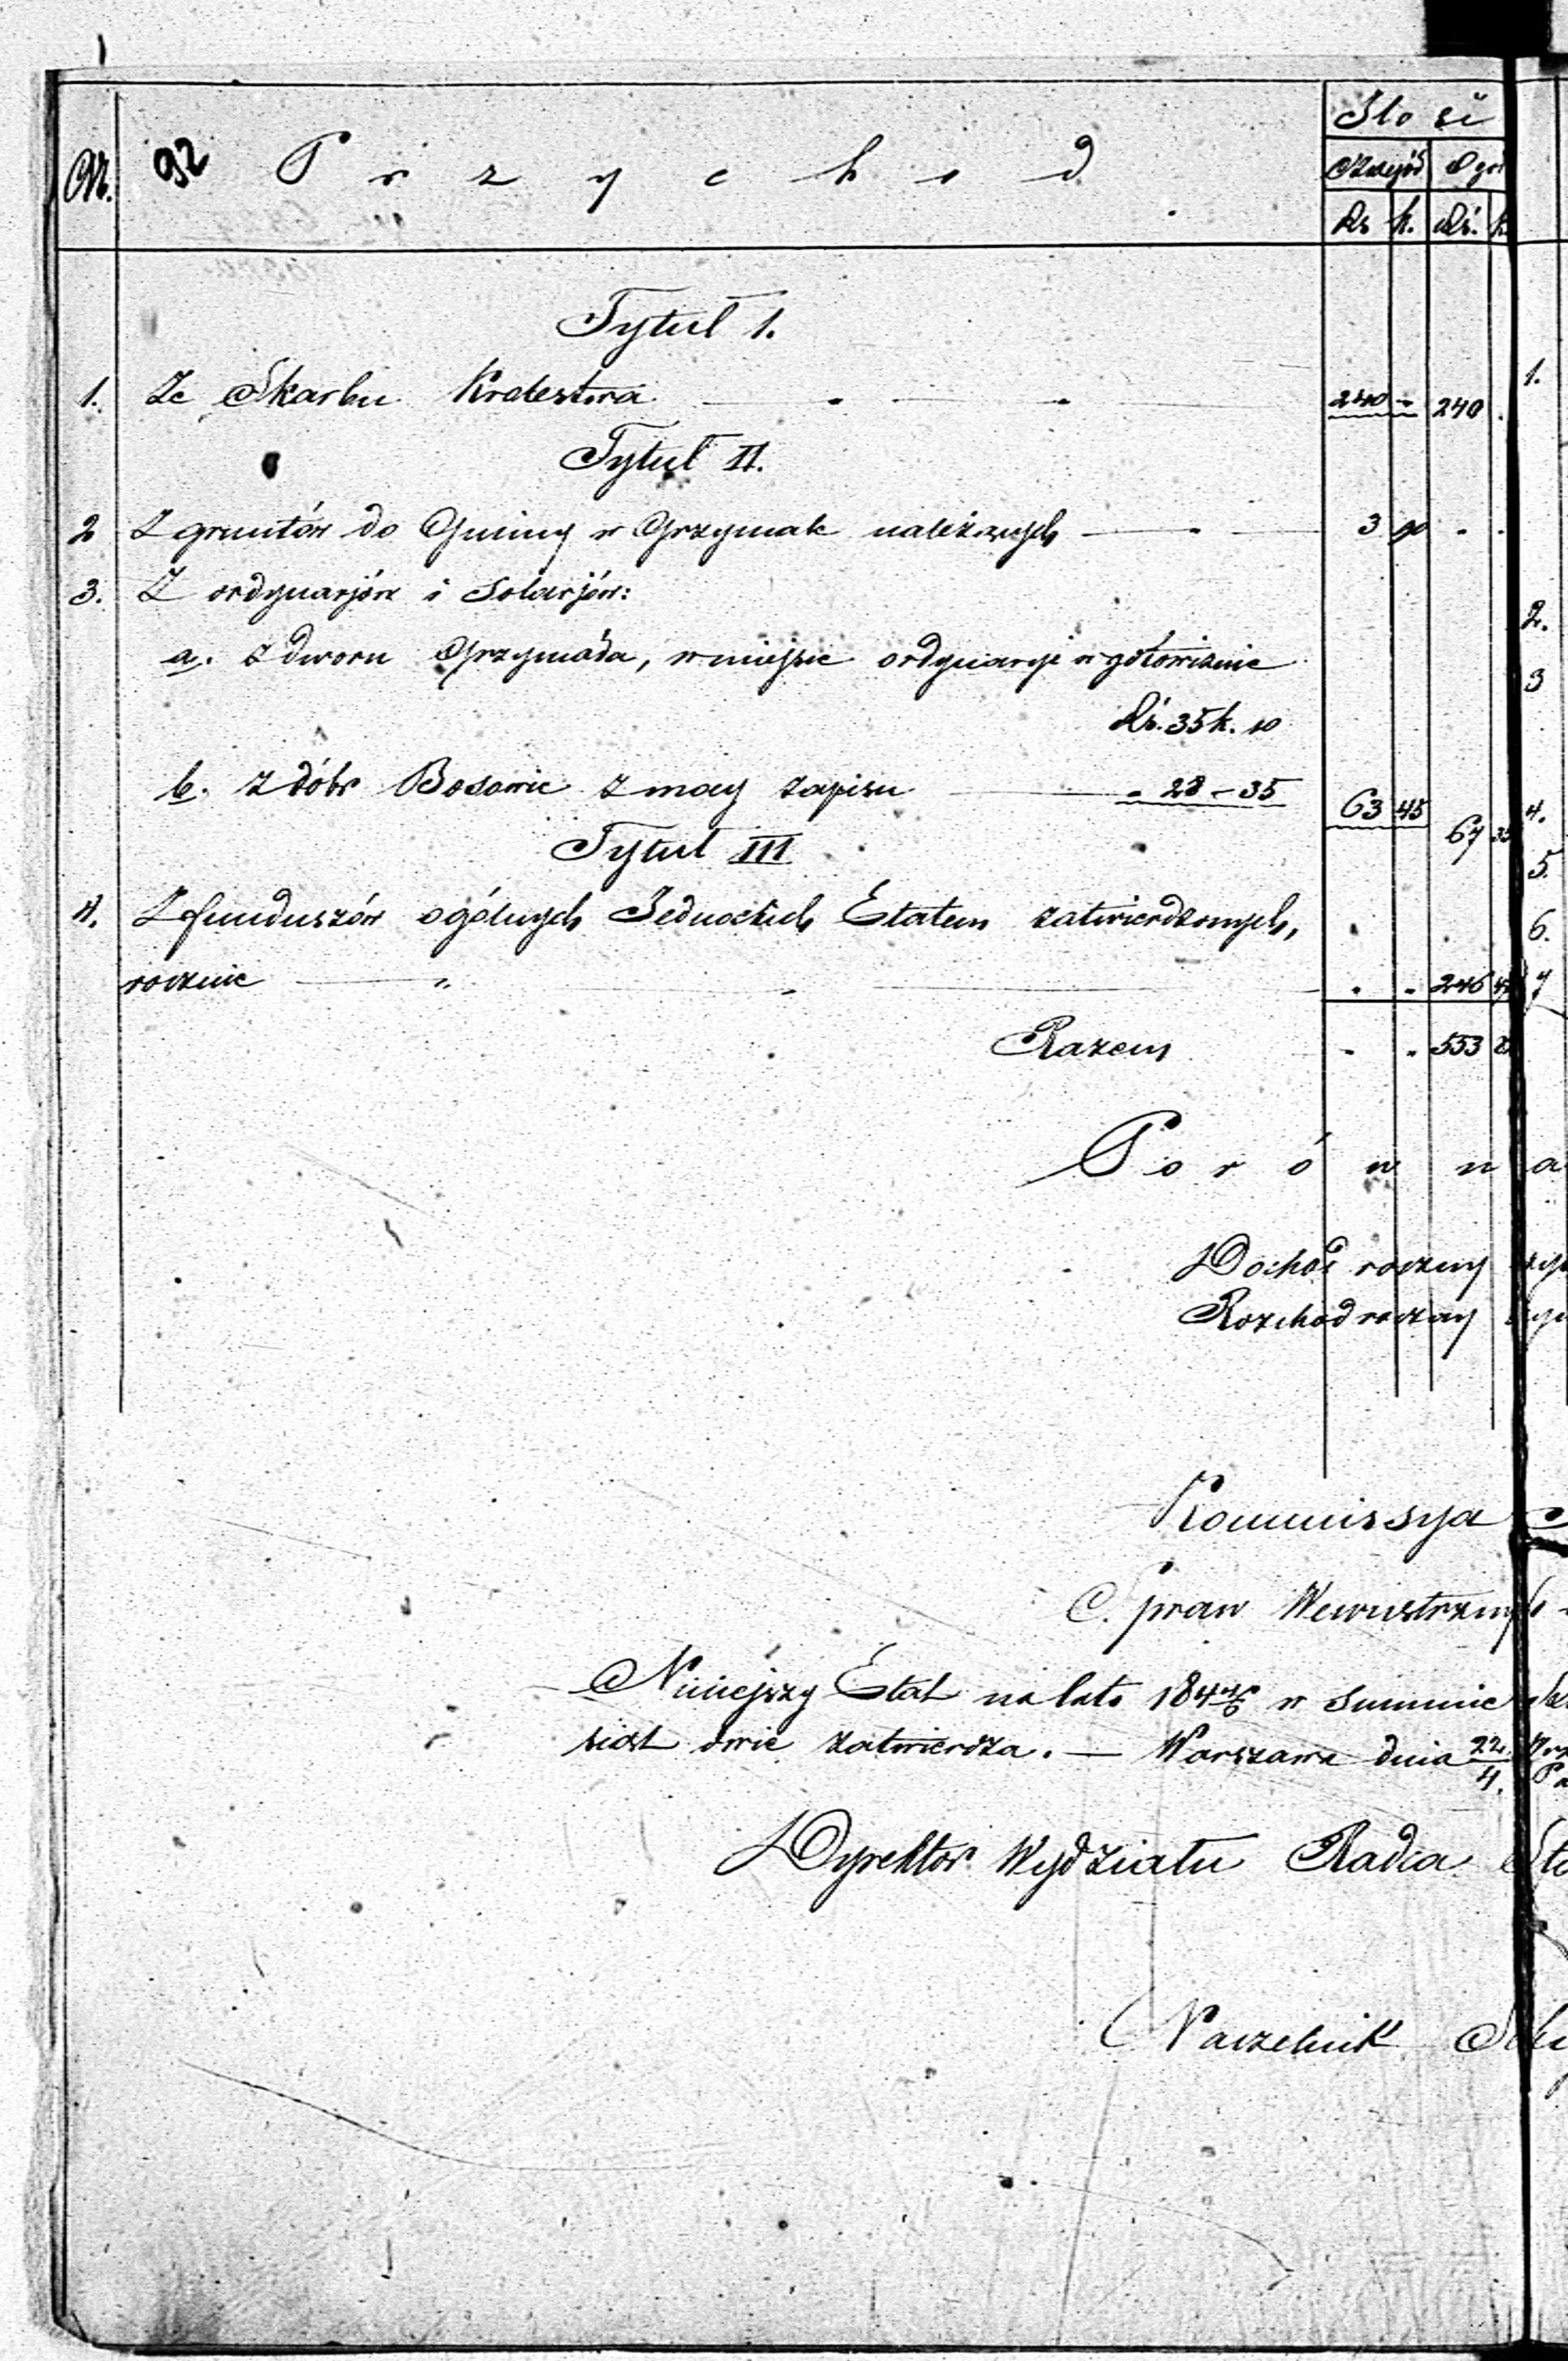 Nr. 92 P r z y c h o d
Ilo ść
Rs k. Rs. k
Tytuł 1.
1. Ze Skarbu Krolestwa 240 - 240
Tytuł II.
2 Z gruntów do Gminy w należących 3 90
3. Z ordynarjów i Solarjów:
a. z dworu Grzymała, w miejsce ordynarji w gotowiznie
Rs. 35 k. 10
b. z dóbr Bosowic z mocy zapisu „ 28 - 35 63 45
67 35
Tytuł III
4. Z funduszów ogólnych Jednockich Etatem zatwierdzonych,
rocznie 246
Razem 553
P o r ó w n a
Dochód roczny
Rozchód roczny
Kommissya
Spraw Wewnętrznych
Niniejszy Etat na lata 184 w Summie
siąt dwie zatwierdza. — Warszawa dnia 22/4.
Dyrektor Wydziału Radca
Naczelnik
1.
2.
3
4.
5.
6.
7